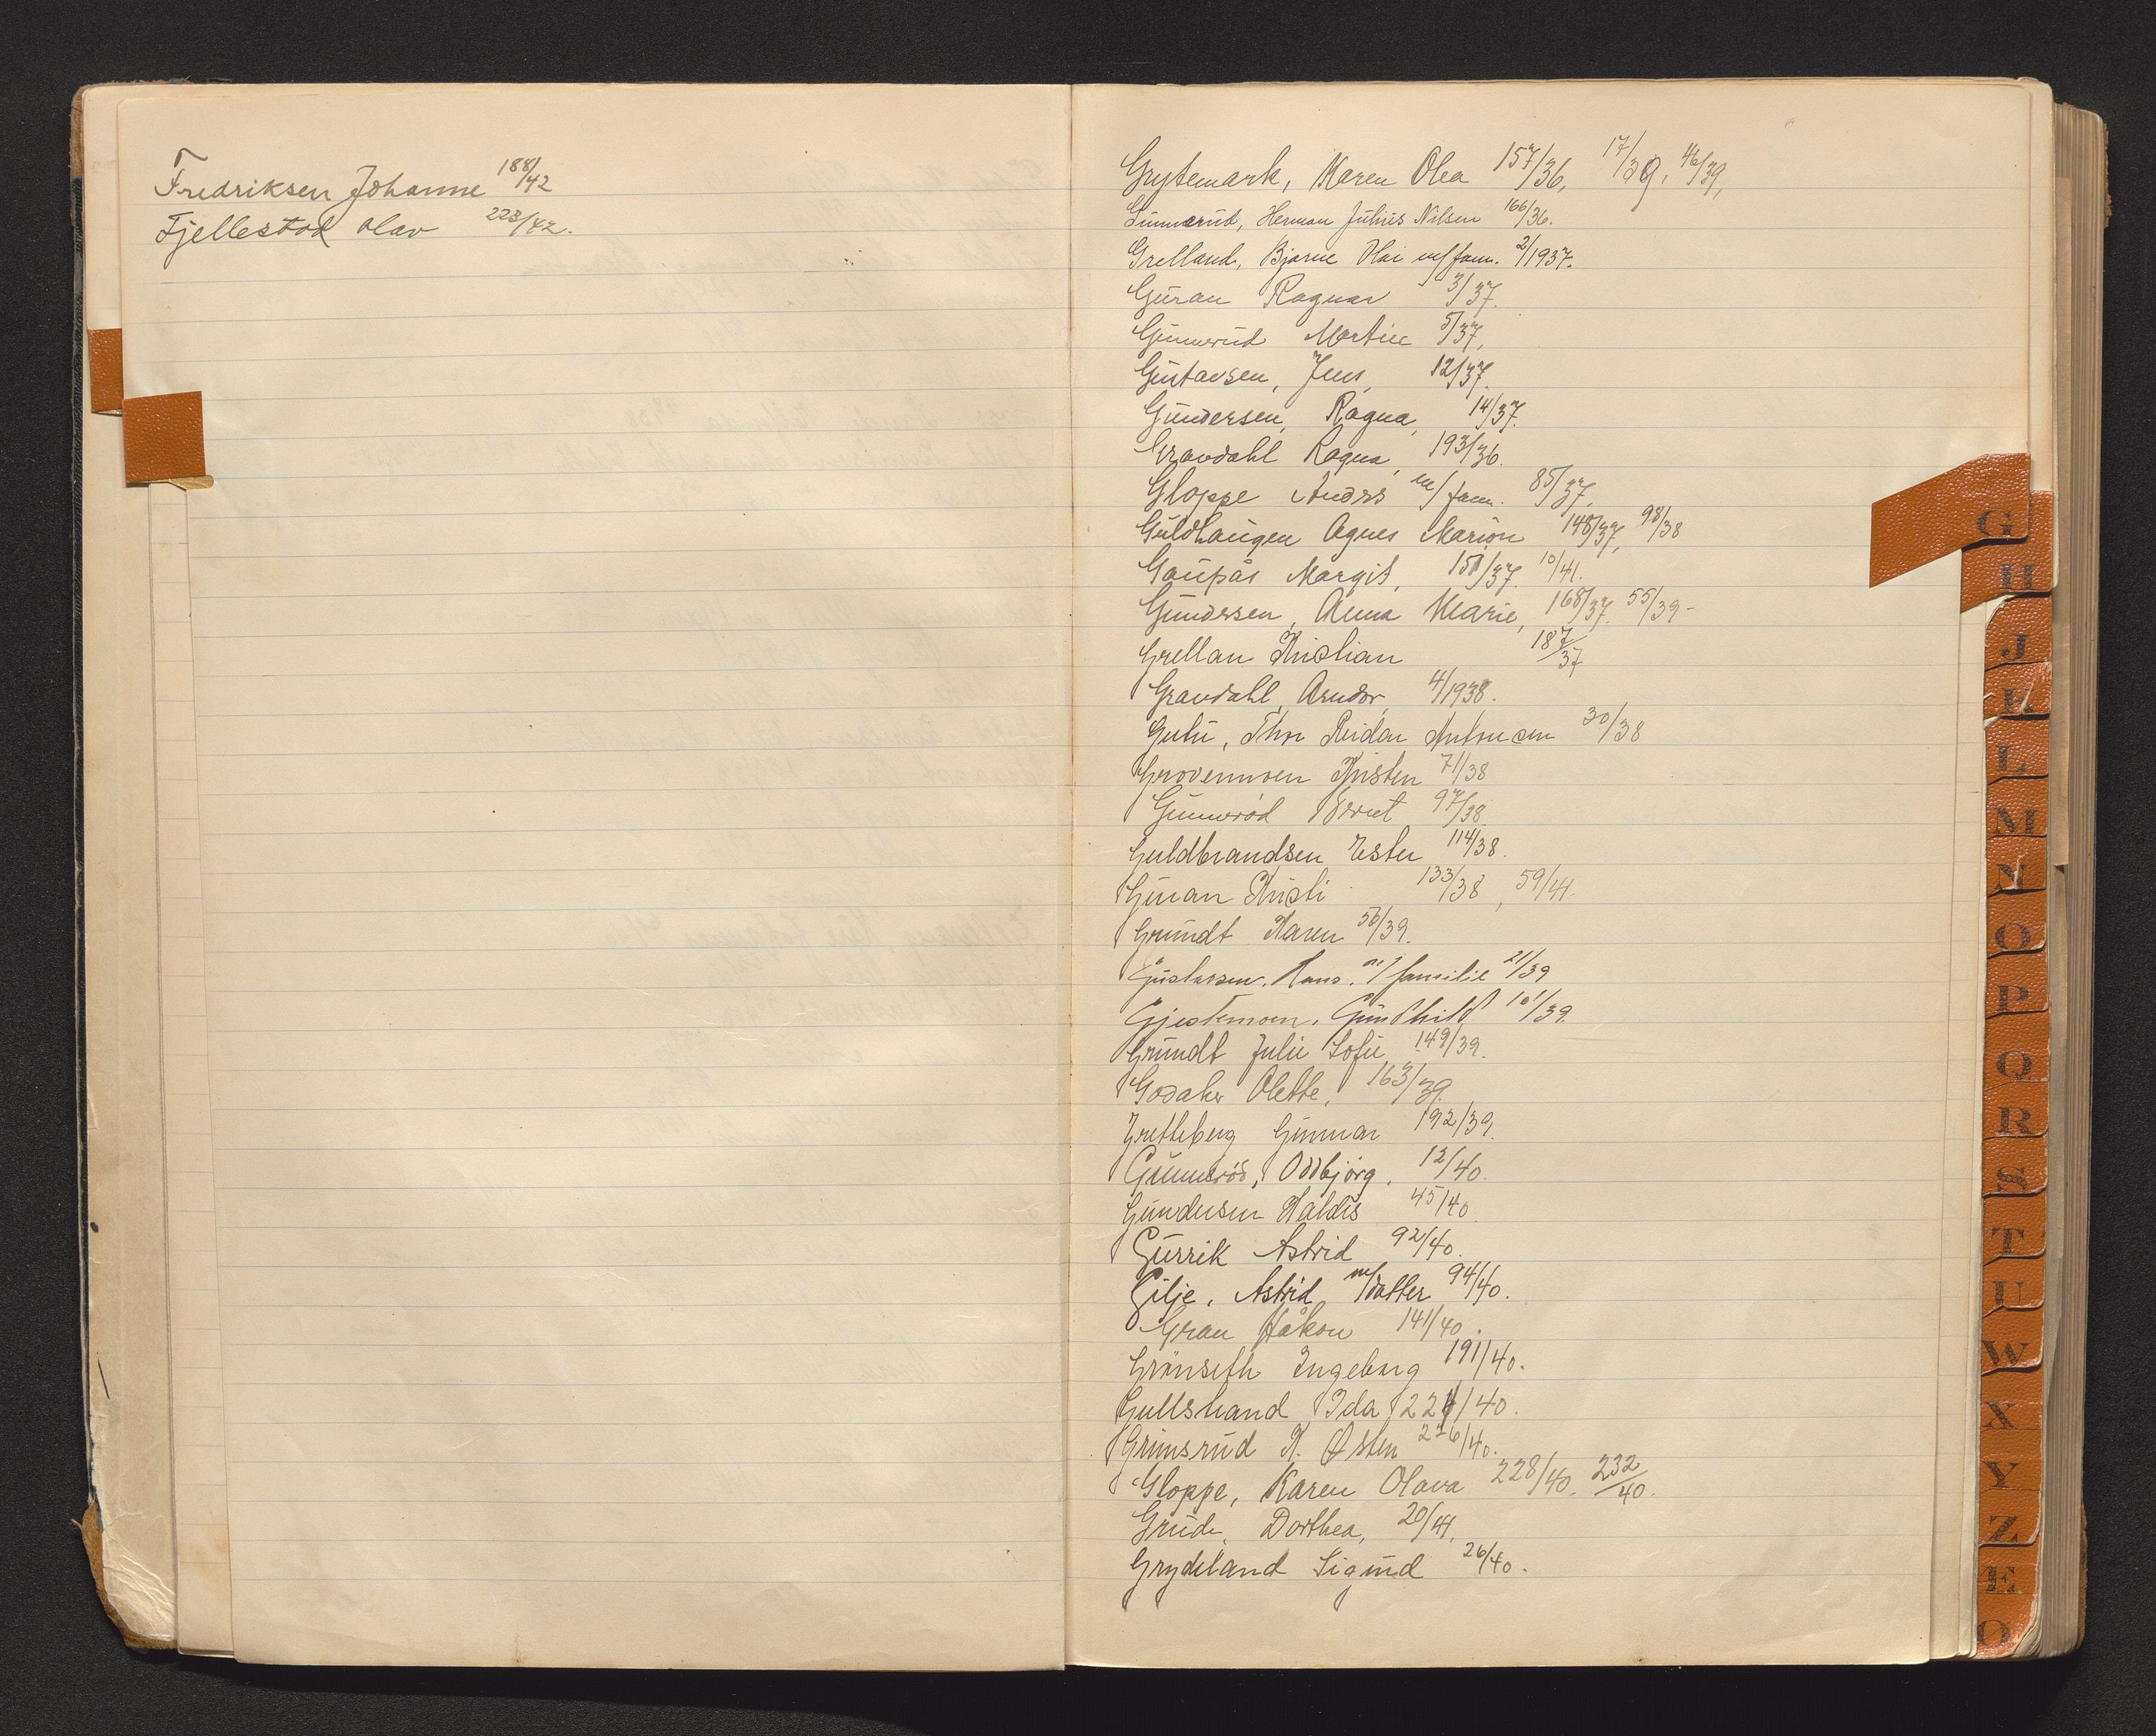 Fredriksen Johanne 188/42
Fjellestad Olav 223/42.
Grytemark, Karen Olea 157/36, 17/39, 46/39,
Gunnerud, Herman Julius Nilsen 166/36.
Grelland, Bjarne Olai m/fam. 2/1937.
Guran Ragnar 3/37.
Gunnerud Martin 5/37,
Gustavsen, Jens, 12/37.
Gundersen, Ragna, 14/37.
Gravdahl Ragna, 193/36.
Gloppe Anders m/fam. 85/37,
Guldhaugen Agnes Marion 148/37, 98/38
Gaupås Margit, 151/37. 10/41.
Gundersen, Anna Marie, 168/37. 55/39-
Grellan Kristian 187/37
Gravdahl, Arndor, 4/1938.
Gutu, Thor Reidar Antonsen 30/38
Grovenmoen Kristen 71/38
Gunnerød Bernt 97/38
Guldbrandsen Ester 114/38.
Guran Kristi 133/38, 59/41.
Grundt Karen 56/39.
Gustavsen. Hans. m/familie 21/39
Gjestemoen. Gunhild 101/39.
Grundt Julie Sofie, 149/39.
Godaker Olette, 163/39.
Gretteberg Gunnar 192/39.
Gunnerød, Oddbjørg. 12/40.
Gundersen Haldis 45/40
Gurrik Astrid 92/40.
Gilje. Astrid m/datter 94/40.
Gran Håkon 141/40.
Grönseth Ingeborg 191/40.
Gullstrand Ida 221/40.
Grimsrud K. Østen 226/40.
Gloppe, Karen Olava 228/40. 232/40.
Grude, Dorthea, 20/41.
Grydeland Sigurd 26/40.
G
H
J
K
L
M
N
O
P
Q
R
S
T
U
W
X
Y
Z
Æ
Ø